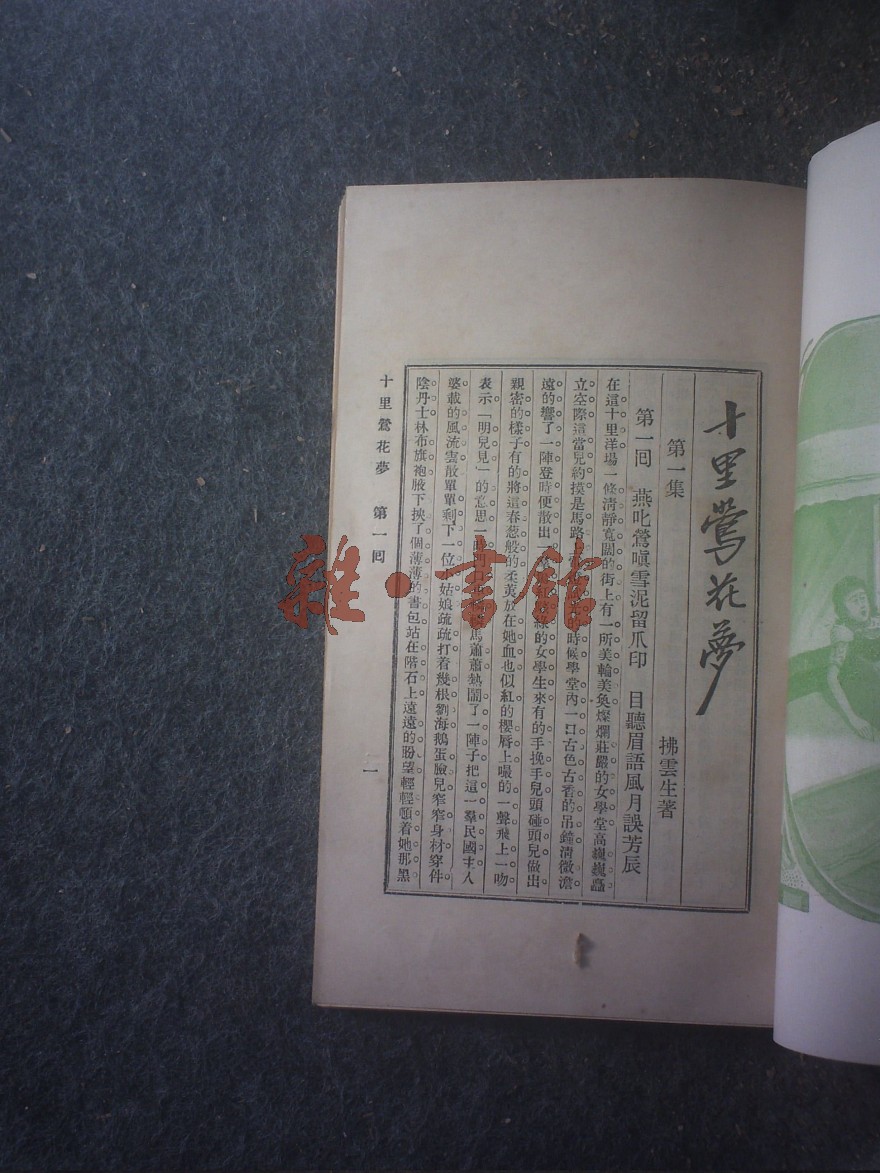 十里鶯花夢
第一集
拂雲生著
第一囘 燕叱鶯嗔雪泥留爪印 目聽眉語風月誤芳辰
在這十里洋場一條淸靜寬闊的街上有一所美輪美奐燦爛莊嚴的女學堂高巍巍矗
立空際這當兒約摸是馬路 的時候學堂內一口古色古香的吊鐘淸微澹
遠的響了一陣登時便散出一 綠的女學生來有的手挽手兒頭碰頭兒做出
親密的樣子有的將這春葱般的柔荑放在她血也似紅的櫻唇上嘬的一聲飛上一吻
表示「明兒見」的意思一時 馬蕭蕭熱鬧了一陣子把這一羣民國主人
婆載的風流雲散單單剩下一位 姑娘疏疏打着幾根劉海鵝蛋臉兒窄窄身材穿件
陰丹士林布旗袍腋下挾了個薄薄的書包站在階石上遠遠的盼望輕輕頓着她那黑
十里鶯花夢 第一囘
一
雜·書館